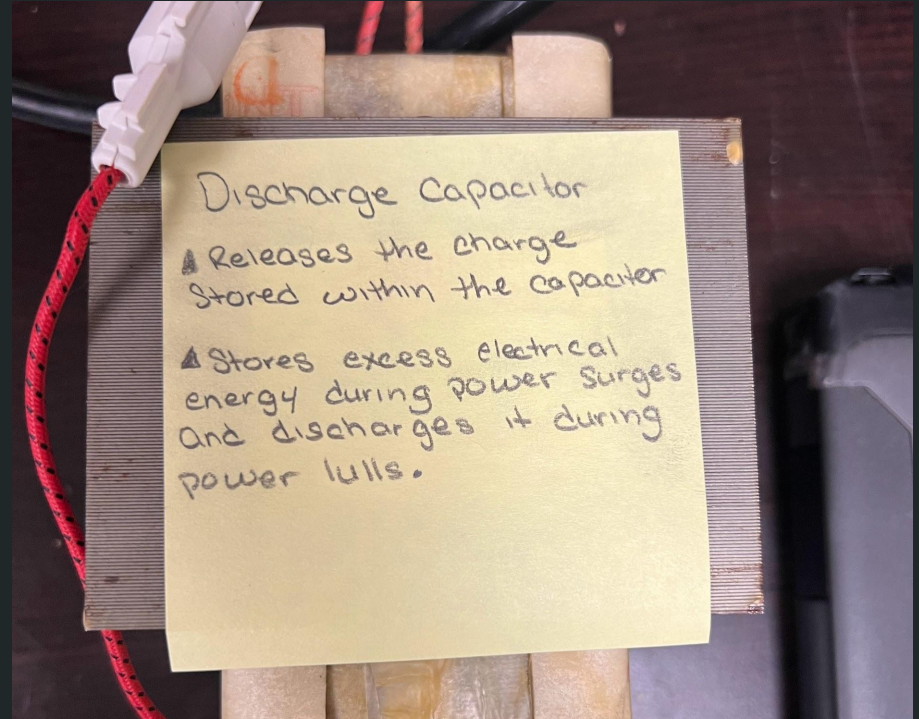 Discharge Capacitor
Releases the charge
Stored within the capacitor
Stores excess electrical
energy during power surges
and discharges it during
power lulls.